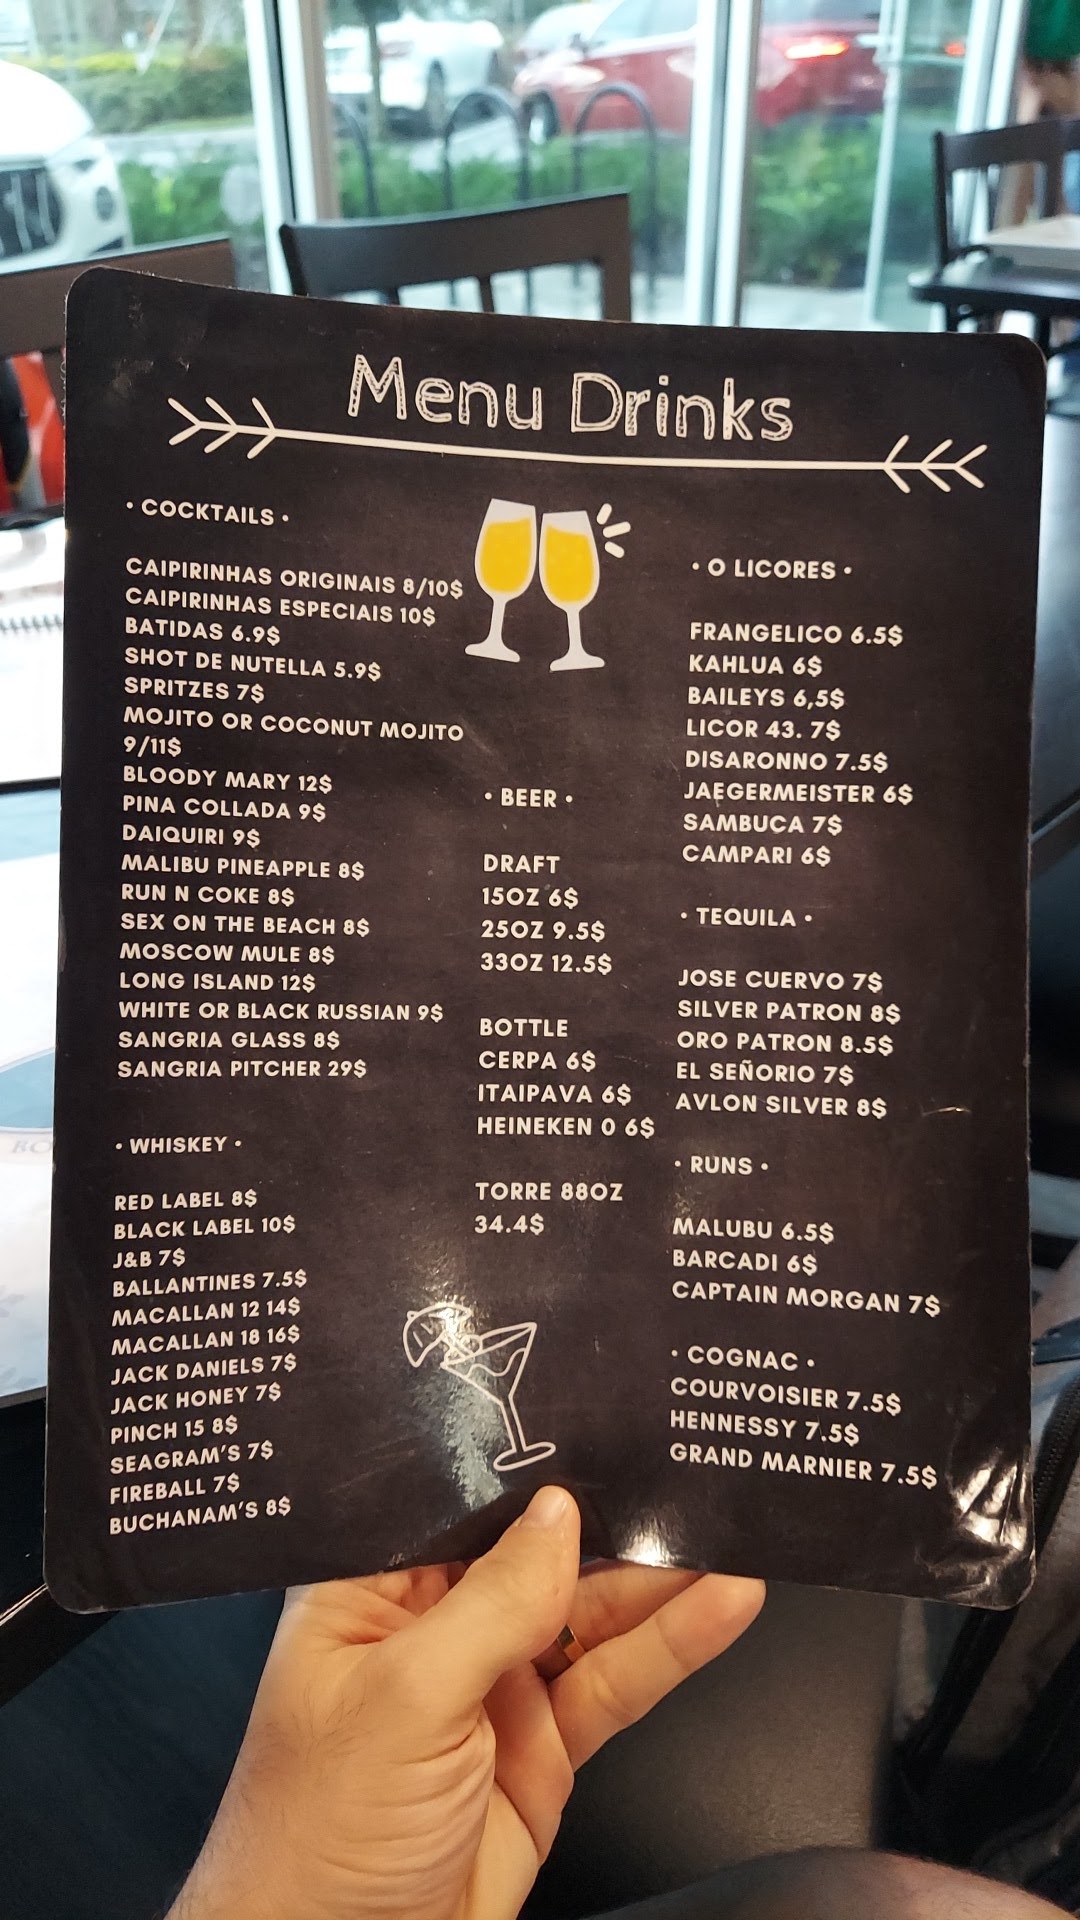 Menu Drinks
• COCKTAILS •
CAIPIRINHAS ORIGINAIS 8/10$
CAIPIRINHAS ESPECIAIS 10$
BATIDAS 6.9$
SHOT DE NUTELLA 5.9$
SPRITZES 7$
MOJITO OR COCONUT MOJITO
9/11$
BLOODY MARY 12$
PINA COLLADA 9$
DAIQUIRI 9$
MALIBU PINEAPPLE 8$
RUN N COKE 8$
SEX ON THE BEACH 8$
MOSCOW MULE 8$
LONG ISLAND 12$
WHITE OR BLACK RUSSIAN 9$
SANGRIA GLASS 8$
SANGRIA PITCHER 29$
• WHISKEY •
RED LABEL 8$
BLACK LABEL 10$
J&B 7$
BALLANTINES 7.5$
MACALLAN 12 14$
MACALLAN 18 16$
JACK DANIELS 7$
JACK HONEY 7$
PINCH 15 8$
SEAGRAM'S 7$
FIREBALL 7$
BUCHANAM'S 8$
• BEER •
DRAFT
15OZ 6$
25OZ 9.5$
33OZ 12.5$
BOTTLE
CERPA 6$
ITAIPAVA 6$
HEINEKEN 0 6$
TORRE 88OZ
34.4$
• O LICORES •
FRANGELICO 6.5$
KAHLUA 6$
BAILEYS 6,5$
LICOR 43. 7$
DISARONNO 7.5$
JAEGERMEISTER 6$
SAMBUCA 7$
CAMPARI 6$
• TEQUILA •
JOSE CUERVO 7$
SILVER PATRON 8$
ORO PATRON 8.5$
EL SEÑORIO 7$
AVLON SILVER 8$
• RUNS •
MALUBU 6.5$
BARCADI 6$
CAPTAIN MORGAN 7$
• COGNAC •
COURVOISIER 7.5$
HENNESSY 7.5$
GRAND MARNIER 7.5$
BO